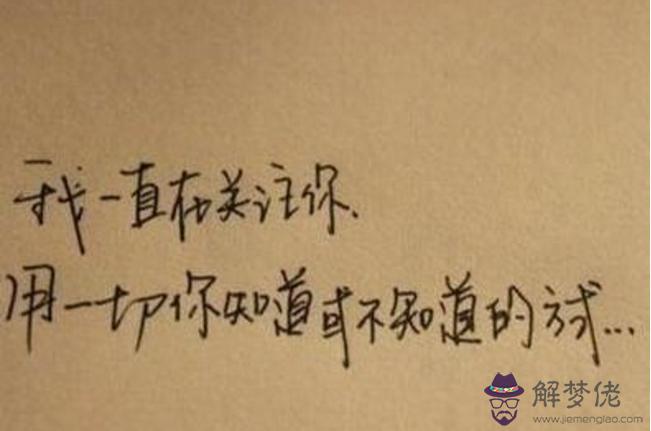 我一直在关注你.
用一切你知道或不知道的方式...
解梦佬
www.jiemenglao.com